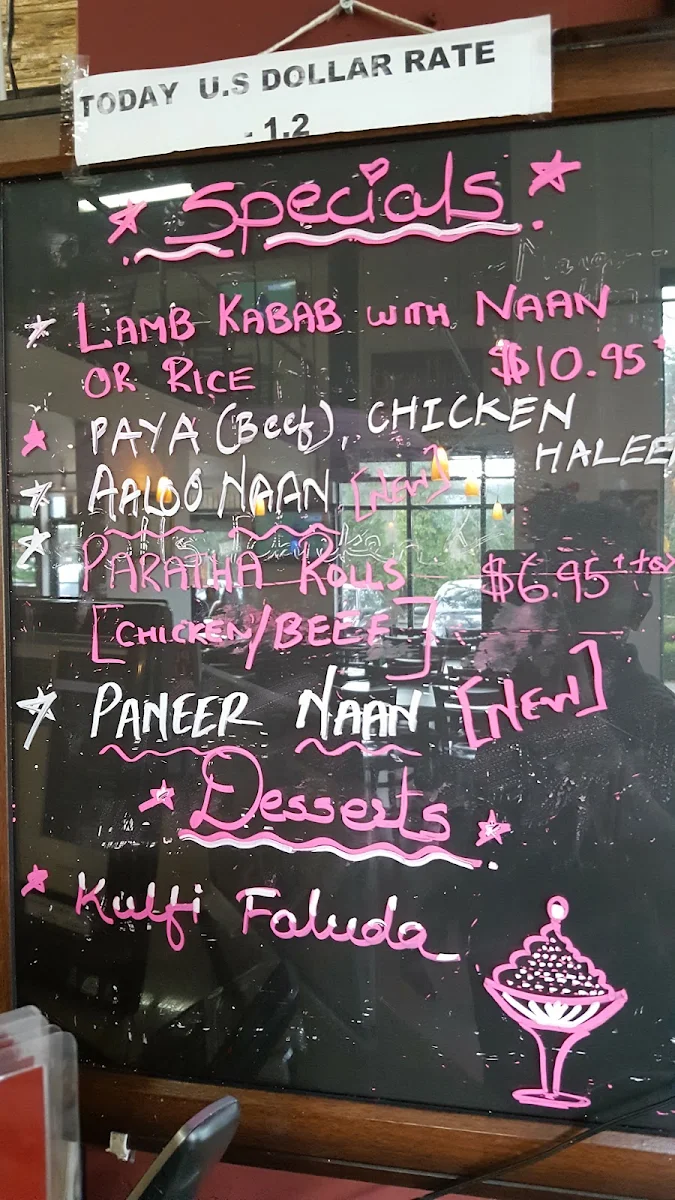 TODAY U.S DOLLAR RATE
- 1.2
Specials
LAMB KABAB WITH NAAN
OR RICE $10.95+
PAYA (Beef), CHICKEN
HALEE
AALOO NAAN [NEW]
PARATHA ROLLS $6.95+tax
[CHICKEN/BEEF]
PANEER NAAN [NEW]
Desserts
Kulfi Faluda